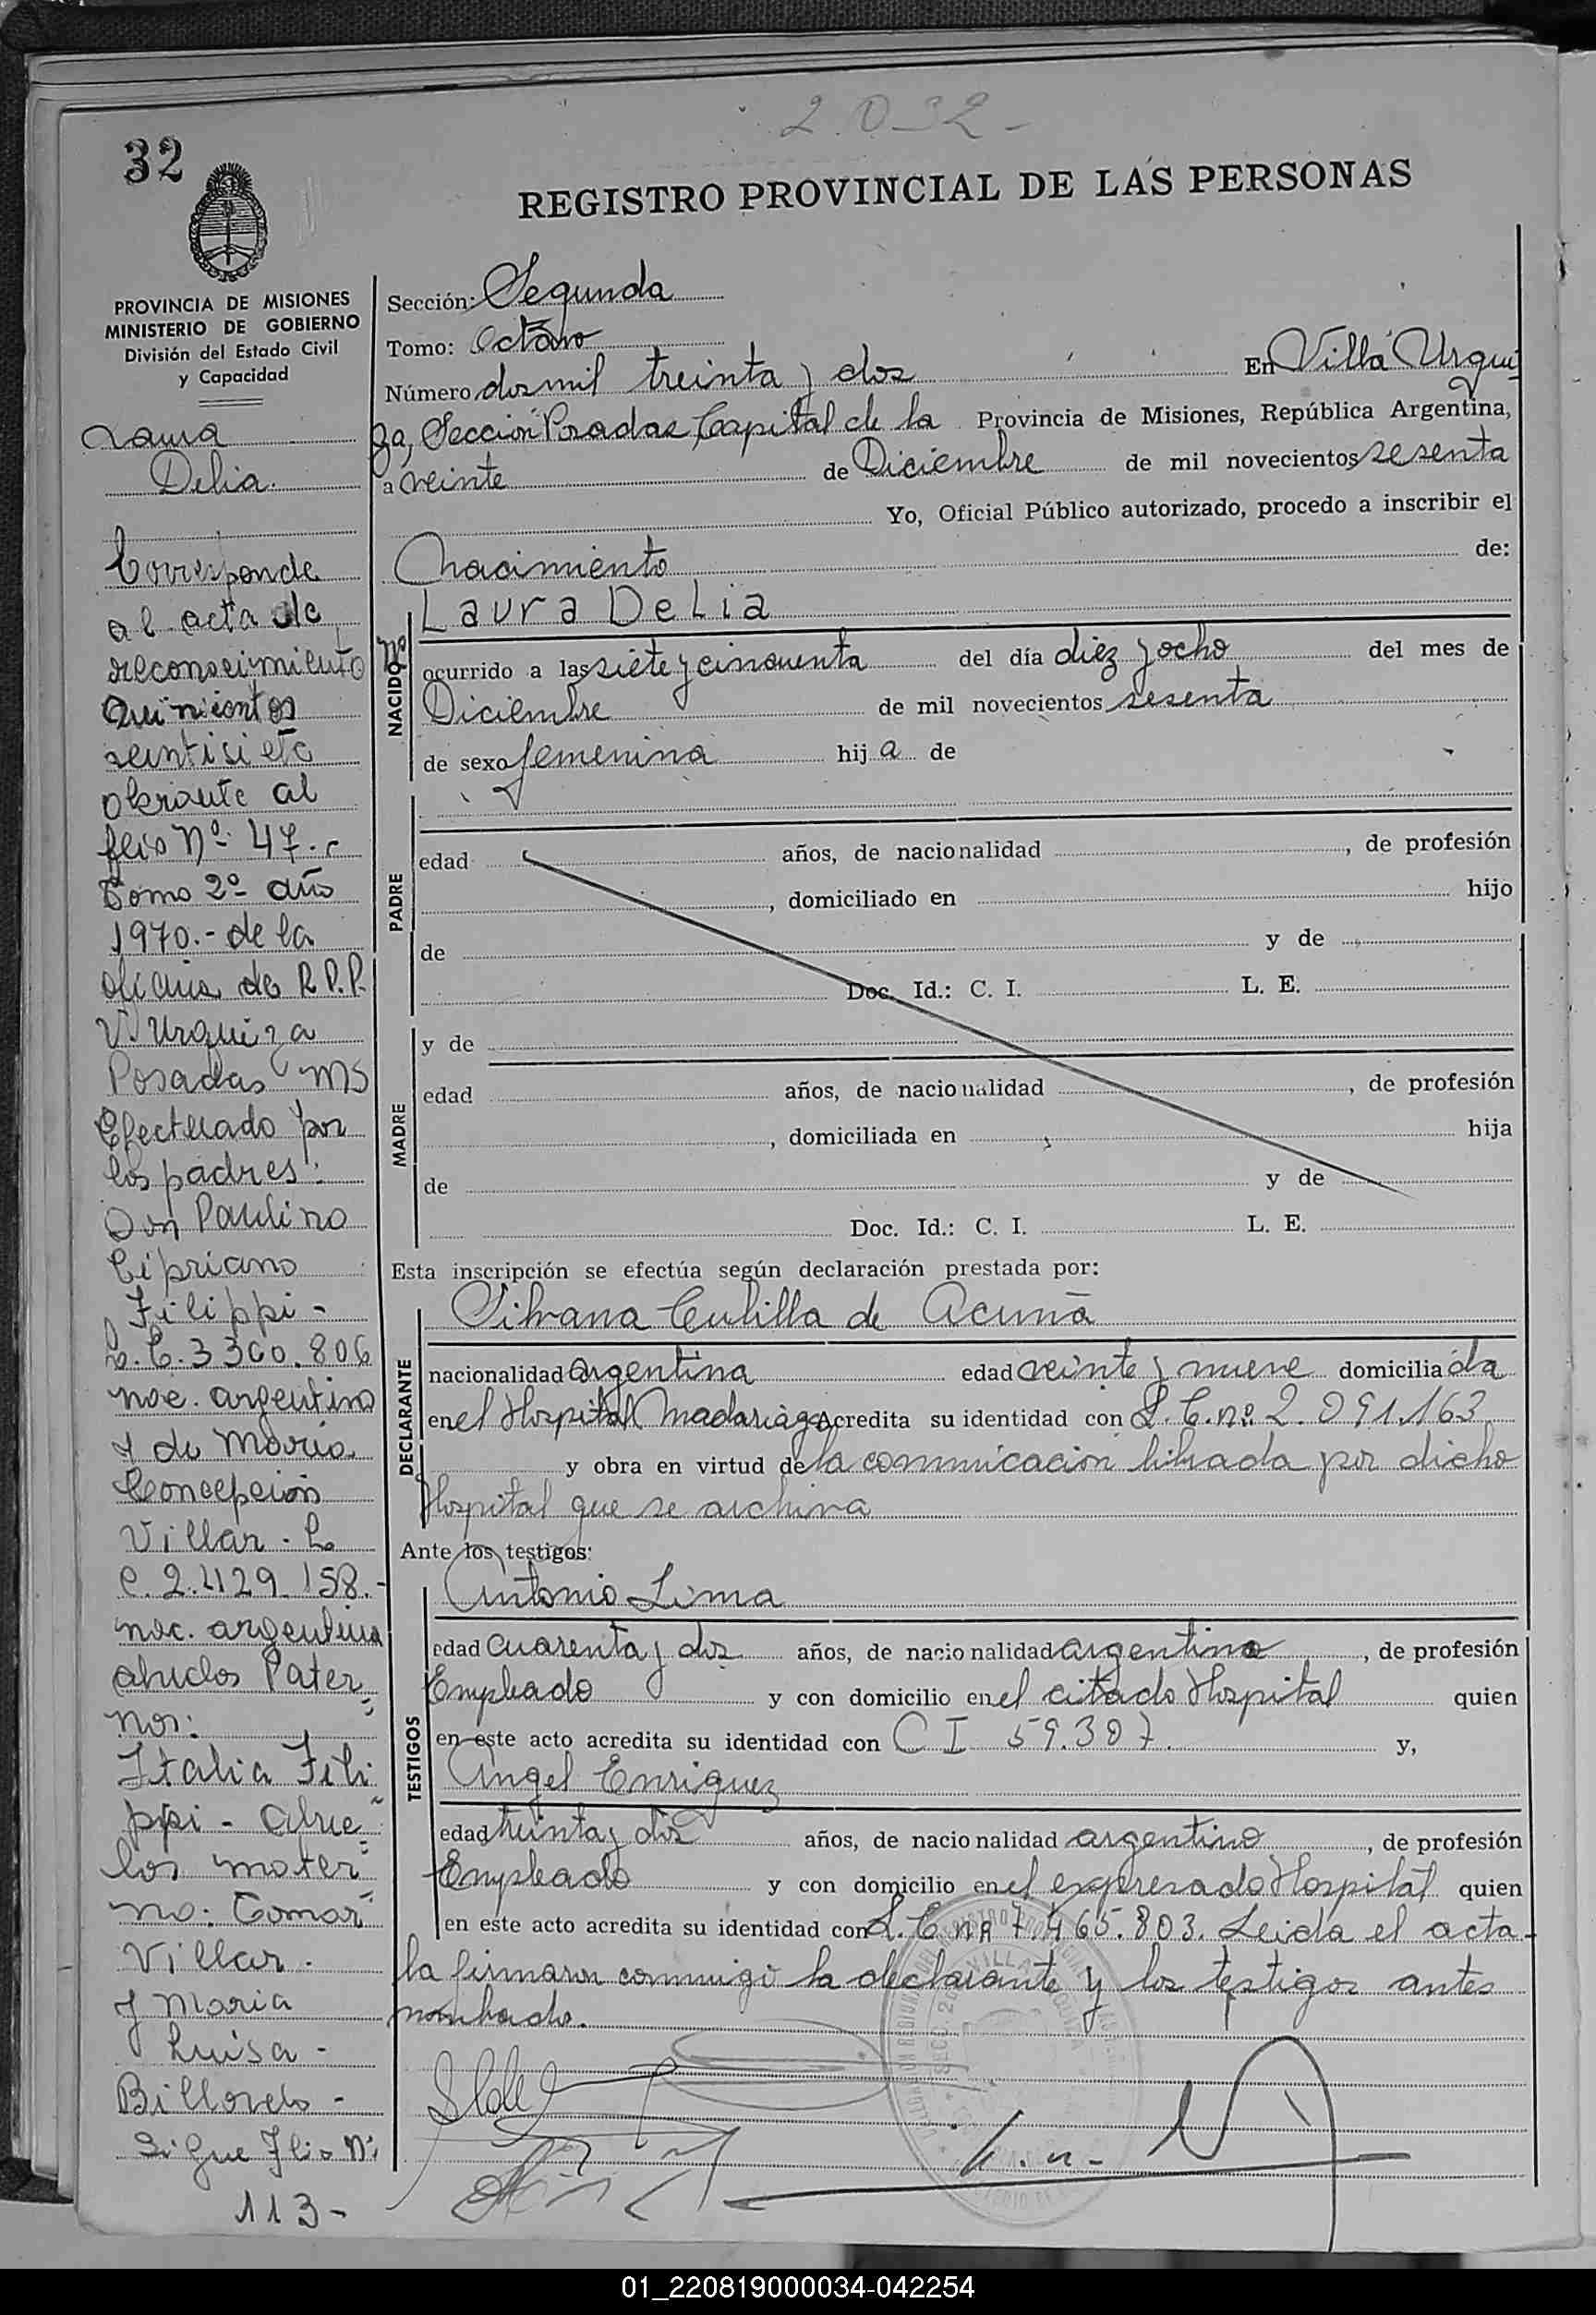 2.032-
32
REGISTRO PROVINCIAL DE LAS PERSONAS
PROVINCIA DE MISIONES
MINISTERIO DE GOBIERNO
División del Estado Civil
y Capacidad
Laura
Delia.
Corresponde
al acta de
reconocimiento
Quinientos
veintisiete
obrante al
folio Nº 47.-
Tomo 2º año
1970.- de la
oficina de R.P.P.
V. Urquiza
Posadas Ms
Efectuado por
los padres:
Don Paulino
Cipriano
Filippi -
L.E. 3300.806
nac. argentino
y de María
Concepción
Villar. L.
C. 2.429.158.-
nac. argentina
abuelos Pater
nos:
Italia Fili
ppi - abue
los mater
no: Tomás
Villar.
y Maria
Luisa -
Sigue Flio Nº
113-
Sección: Segunda
Tomo: Octavo
Número dos mil treinta y dos En Villa Urqui
za, Sección Posadas Capital de la Provincia de Misiones, República Argentina,
a veinte de Diciembre de mil novecientos sesenta
Yo, Oficial Público autorizado, procedo a inscribir el
Nacimiento de:
Laura Delia
NACIDO
ocurrido a las siete y cincuenta del día diez y ocho del mes de
Diciembre de mil novecientos sesenta
de sexo femenina hija de
PADRE
edad años, de nacionalidad , de profesión
, domiciliado en hijo
de y de
Doc. Id.: C. I. L. E.
y de
MADRE
edad años, de nacionalidad , de profesión
, domiciliada en hija
de y de
Doc. Id.: C. I. L. E.
Esta inscripción se efectúa según declaración prestada por:
Silvana Cubilla de Acuña
DECLARANTE
nacionalidad argentina edad veinte y nueve domiciliada
en el Hospital Madariaga Acredita su identidad con L.C. nº 2.091.163
y obra en virtud de la comunicación librada por dicho
Hospital que se archiva
Ante los testigos:
Antonio Lima
TESTIGOS
edad cuarenta y dos años, de nacionalidad argentino , de profesión
Empleado y con domicilio en el citado Hospital quien
en este acto acredita su identidad con C I 59.307. y,
Angel Enriquez
edad treinta y dos años, de nacionalidad argentino , de profesión
Empleado y con domicilio en el expresado Hospital quien
en este acto acredita su identidad con L.E. nº 7.465.803. Leida el acta
la firmaron conmigo la declarante y los testigos antes
nombrados.
01_220819000034-042254